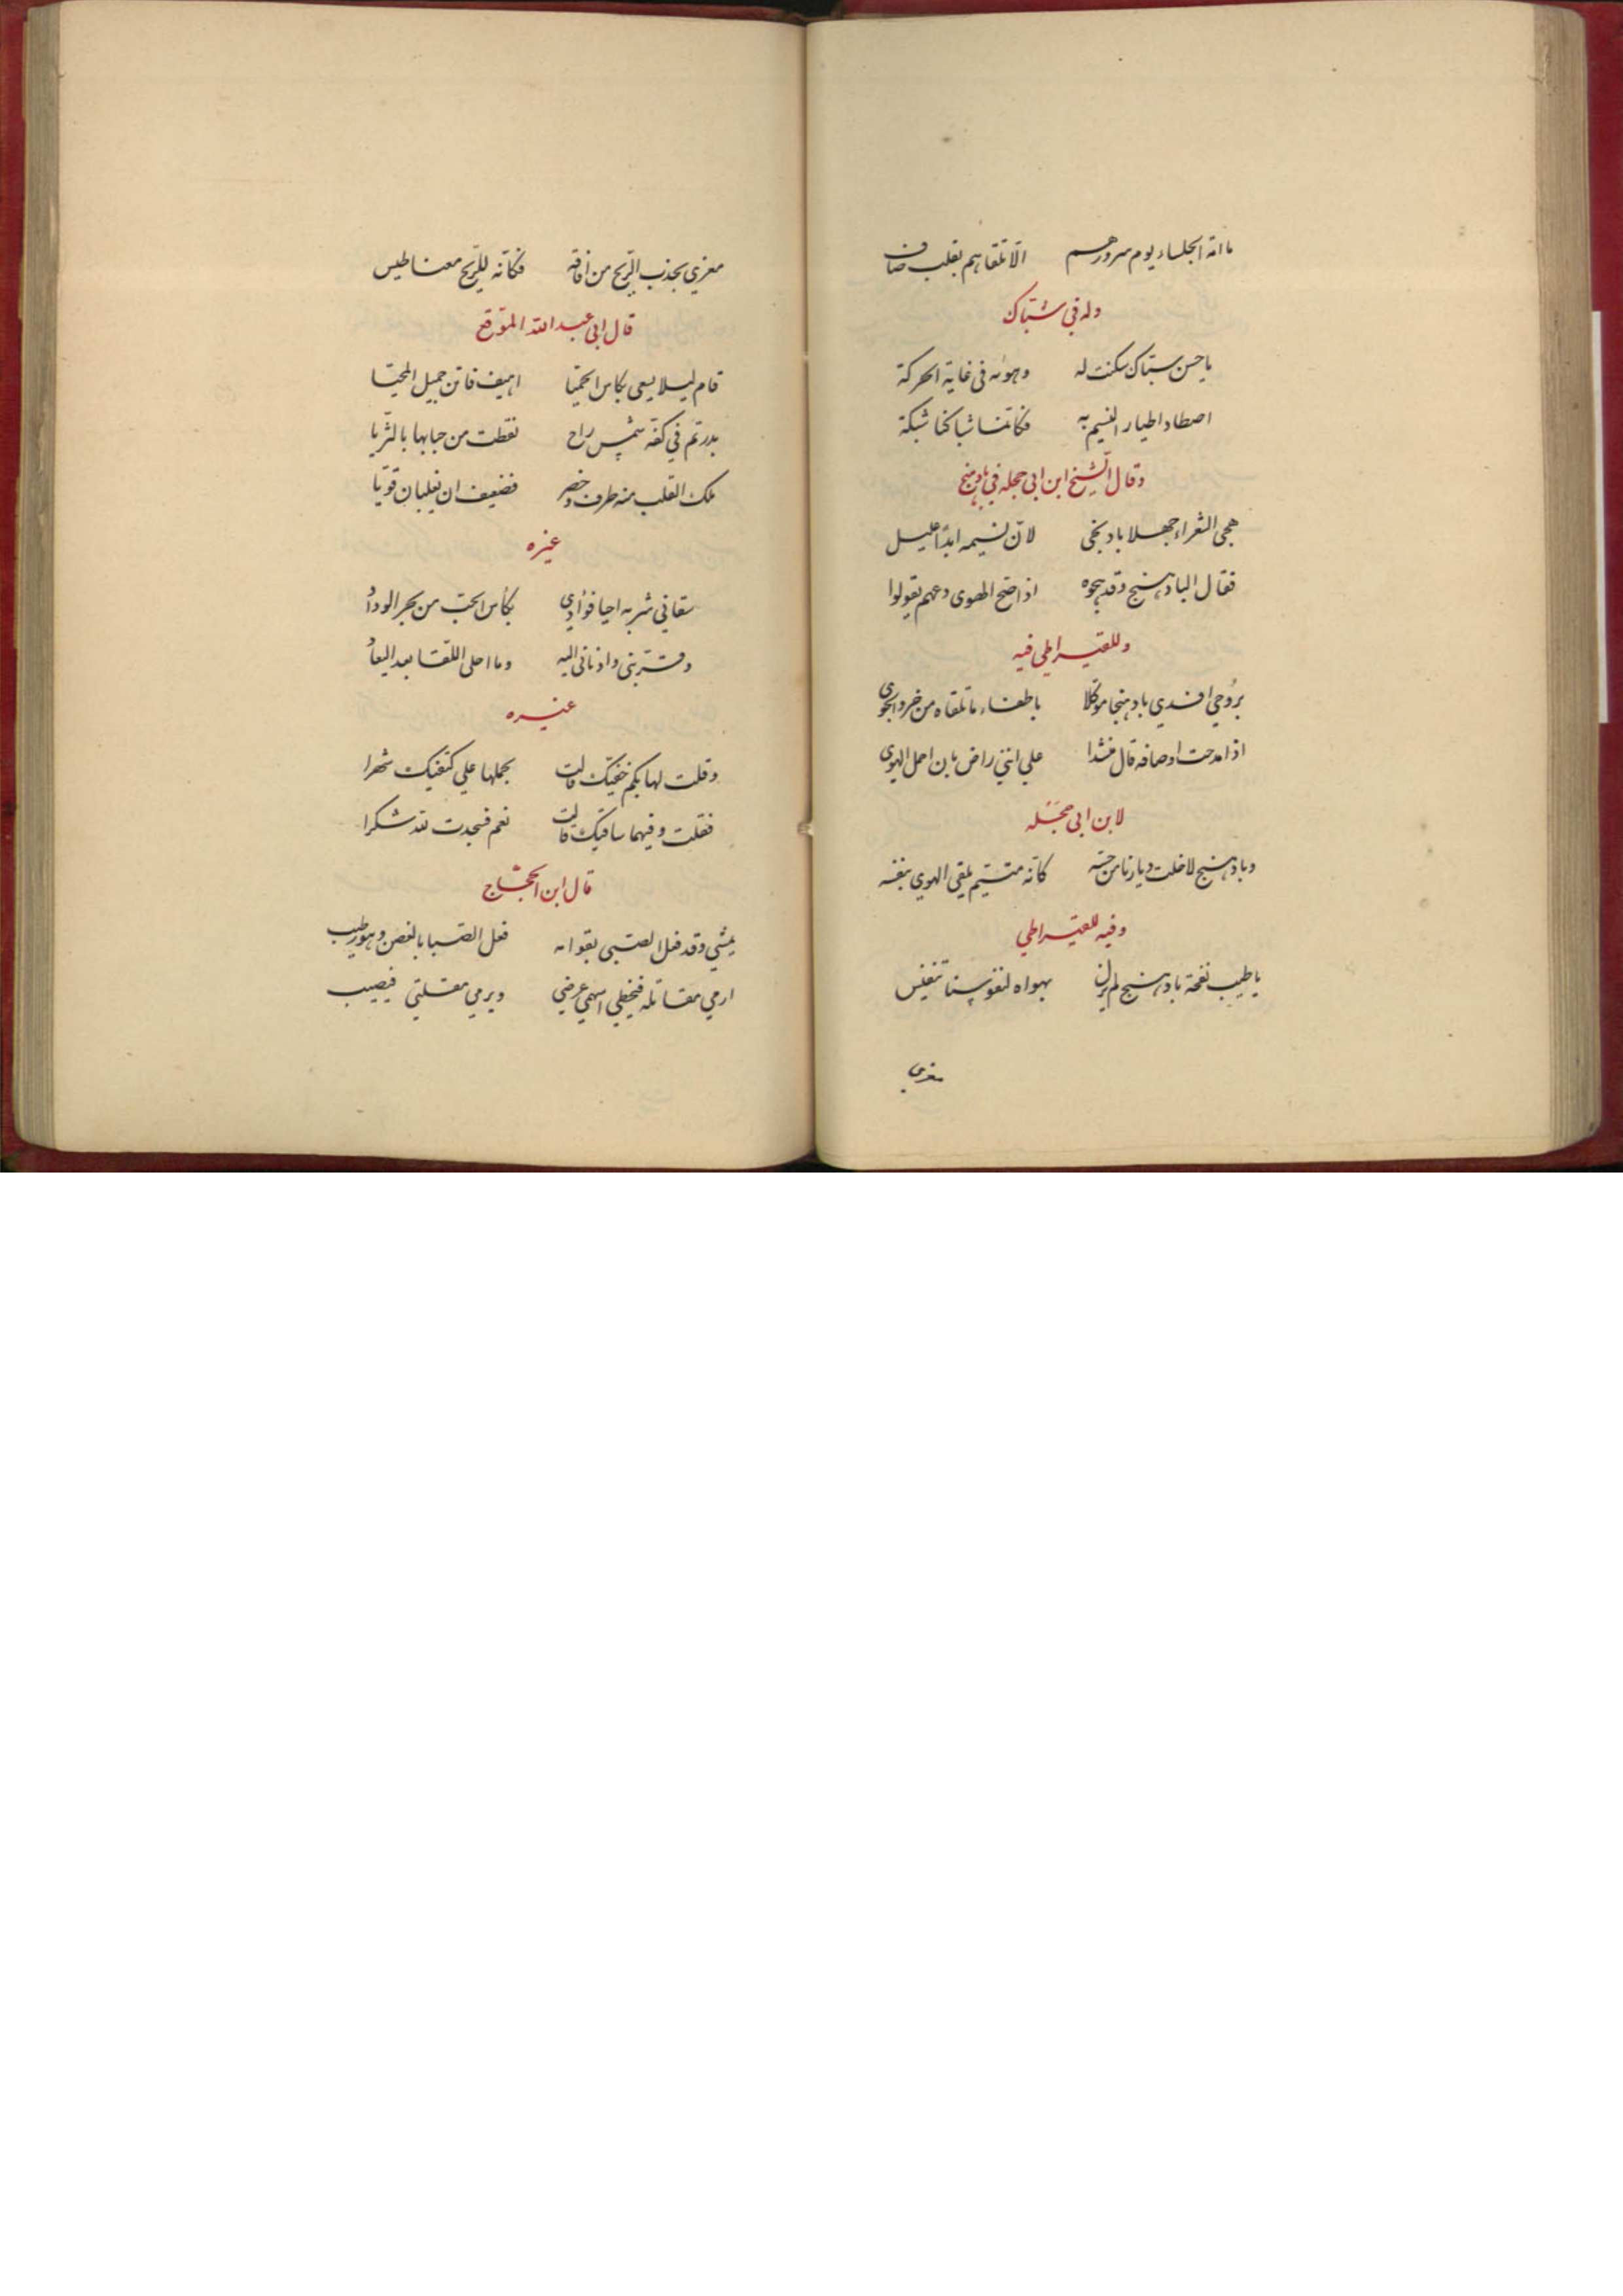 ما امّه الجلساء يوم سرورهم الّا تلقاهم بقلب صاف
وله في شبّاك
يا حسن شبّاك سكنت له وهواه في غاية الحركة
اصطاد اطيار النسيم به فكانّما شباكنا شبكة
وقال الشيخ ابن ابي حجله في بادهنج
هجى الشعراء جهلا بادهنجي لانّ نسيمه ابدًا عليل
فقال البادهنج وقد هجوه اذا صح الهوى دعهم يقولوا
وللقيراطي فيه
بروحي افدي بادهنجا موكلا باطفاء ما تلقاه من حر والجوى
اذا مدحت اوصافه قال منشدا على انني راض بان احمل الهوى
لابن ابي حجله
وبادهنج لا خلت ديارنا من حسّه كانّه متيّم يلقي الهوي بنفسه
وفيه للقيراطي
يا طيب نفحة بادهنج لم يزل بهواه لنفوسنا تنفيس
مغري
مغري يجذب الرّيح من افاقه فكانّه للرّيح مغناطيس
قال ابي عبد الله الموّقع
قام ليلا يسعى بكاس الحميّا اهيف فاتن جميل المحيّا
بدر تم في كفّه شمس راح نقطت من حبابها بالثريا
ملك القلب منه طرف وخصر فضعيفان يغلبان قويّا
غيره
سقاني شربه احيا فؤادي بكأس الحبّ من بحر الوداد
وقرّبني وادناني اليه وما احلى اللقا بعد البعاد
غيره
وقلت لها بكم خفيّك قالت بحملها علي كتفيك شهرا
فقلت وفيهما ساقيك قالت نعم فسجدت لله شكرا
قال ابن الحجّاج
يمشي وقد فعل الصّبى بقوامه فعل الصّبا بالغصن وهو رطيب
ارمي مقاتله فيخطي اسهمي غرضي ويرمي مقلتي فيصيب